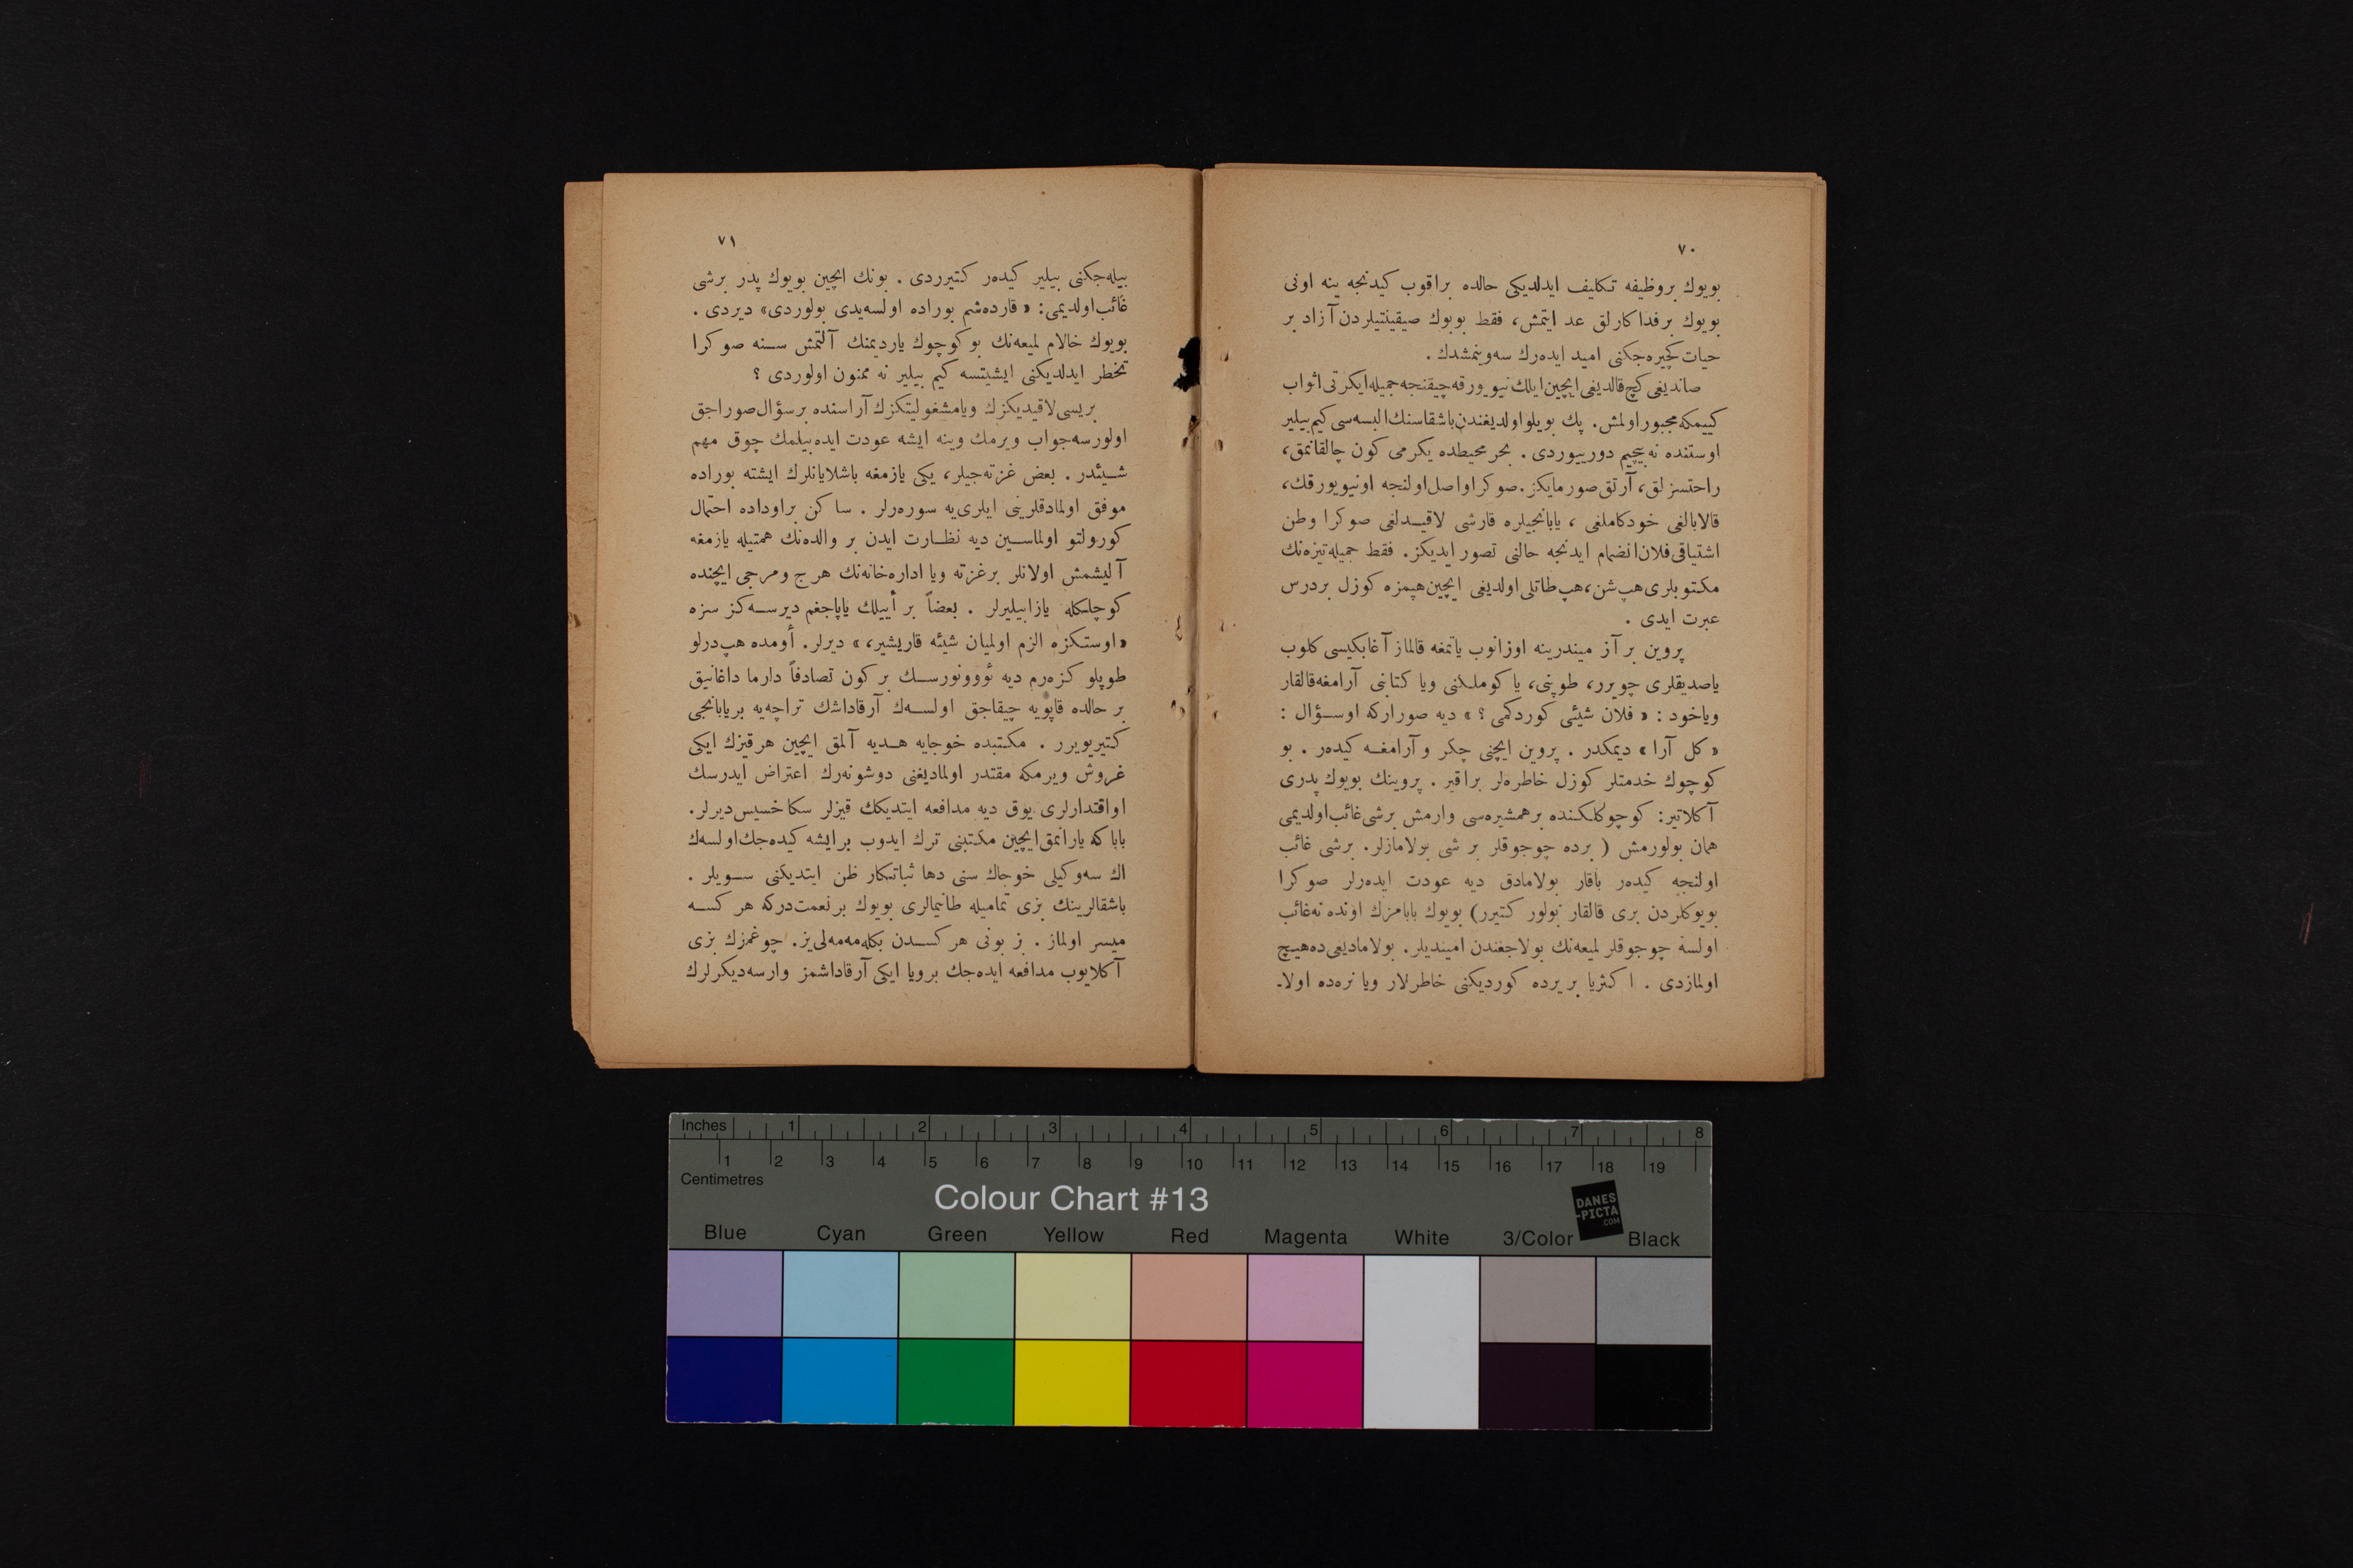 ٧٠
بویوك بروظیفه تكلیف ایدلدیكی حالده براقوب كیدنجه ینه اونی
بویوك برفداكارلق عد ایتمش، فقط بویوك صیقینتیلردن آزاد بر
حیات كچیره‌جكنی امید ایده‌رك سه‌وینمشدك .
صاندیغی كچ قالدیغی ایچین ایلك نیویورقه چیقنجه جمیله ایكرتی اثواب
كییمكه مجبور اولمش. پك بویلو اولدیغندن باشقاسنك البسه‌سی كیم بیلیر
اوستنده نه بیچیم دورییوردی . بحر محیطده یكرمی كون چالقانمق،
راحتسزلق، آرتق صورمایكز. صوكرا واصل اولنجه اونیویورقك،
قالابالغی خودكاملغی ، یابانجیلره قارشی لاقیدلغی صوكرا وطن
اشتیاقی فلان انضمام ایدنجه حالنی تصور ایدیكز. فقط جمیله تیزه‌نك
مكتوبلری هپ شن، هپ طاتلی اولدیغی ایچین هپمزه كوزل بردرس
عبرت ایدی .
پروین بر آز میندرینه اوزانوب یاتمغه قالماز آغابكیسی كلوب
یاصدیقلری چویرر، طوپنی، یا كوملكنی ویا كتابنی آرامغه قالقار
ویاخود : « فلان شیئی كوردكمی ؟ » دیه صوراركه اوسؤال :
« كل آرا » دیمكدر . پروین ایچنی چكر و آرامغه كیده‌ر . بو
كوچوك خدمتلر كوزل خاطره‌لر براقیر . پروینك بویوك پدری
آكلاتیر: كوچوكلكنده برهمشیره‌سی وارمش برشی غائب اولدیمی
همان بولورمش ( برده چوجوقلر بر شی بولامازلر. برشی غائب
اولنجه كیده‌ر باقار بولامادق دیه عودت ایده‌رلر صوكرا
بویوكلردن بری قالقار بولور كتیرر) بویوك بابامزك اونده نه غائب
اولسه چوجوقلر لمیعه‌نك بولاجغندن امیندیلر. بولامادیغی ده هیچ
اولمازدی . اكثریا بر یرده كوردیكنی خاطرلار ویا نره‌ده اولا‌ـ
٧١
بیله‌جكنی بیلیر كیده‌ر كتیرردی . بونك ایچین بویوك پدر برشی
غائب اولدیمی: « قارده‌شم بوراده اولسه‌یدی بولوردی» دیردی .
بویوك خالام لمیعه‌نك بو كوچوك یاردیمنك آلتمش سنه صوكرا
تخطر ایدلدیكنی ایشیتسه كیم بیلیر نه ممنون اولوردی ؟
بریسی لاقیدیكزك ویا مشغولیتكزك آراسنده برسؤال صوراجق
اولورسه جواب ویرمك وینه ایشه عودت ایده‌بیلمك چوق مهم
شیئدر . بعض غزته‌جیلر، یكی یازمغه باشلایانلرك ایشته بوراده
موفق اولمادقلرینی ایلری‌یه سوره‌رلر . ساكن براوداده احتمال
كورولتو اولماسین دیه نظارت ایدن بر والده‌نك همتیله یازمغه
آلیشمش اولانلر برغزته ویا اداره‌خانه‌نك هرج ومرجی ایچنده
كوچلكله یازابیلیرلر . بعضاً بر أییلك یاپاجغم دیرسه‌كز سزه
«اوستكزه الزم اولمیان شیئه قاریشیر، » دیرلر. أومده هپ درلو
طوپلو كزه‌رم دیه ئوونورسك بر كون تصادفاً دارما داغانیق
بر حالده قاپویه چیقاجق اولسه‌ك آرقاداشك تراچه‌یه بریابانجی
كتیریویرر . مكتبده خوجایه هدیه آلمق ایچین هر قیزك ایكی
غروش ویرمكه مقتدر اولمادیغنی دوشونه‌رك اعتراض ایدرسك
اواقتدارلری یوق دیه مدافعه ایتدیكك قیزلر سكا خسیس دیرلر.
باباكه یارانمق ایچین مكتبنی ترك ایدوب برایشه كیده‌جك اولسه‌ك
اك سه‌وكیلی خوجاك سنی دها ثباتكار ظن ایتدیكنی سویلر .
باشقالرینك بزی تمامیله طانیمالری بویوك برنعمت‌دركه هر كسه
میسر اولماز . ز بونی هر كسدن بكله‌مه‌مه‌لی‌یز. چوغمزك بزی
آكلایوب مدافعه ایده‌جك برویا ایكی آرقاداشمز وارسه دیكرلرك
Inches 1 2 3 4 5 6 7 8
1 2 3 4 5 6 7 8 9 10 11 12 13 14 15 16 17 18 19
Centimetres
Colour Chart #13
DANES
-PICTA
.COM
Blue Cyan Green Yellow Red Magenta White 3/Color Black